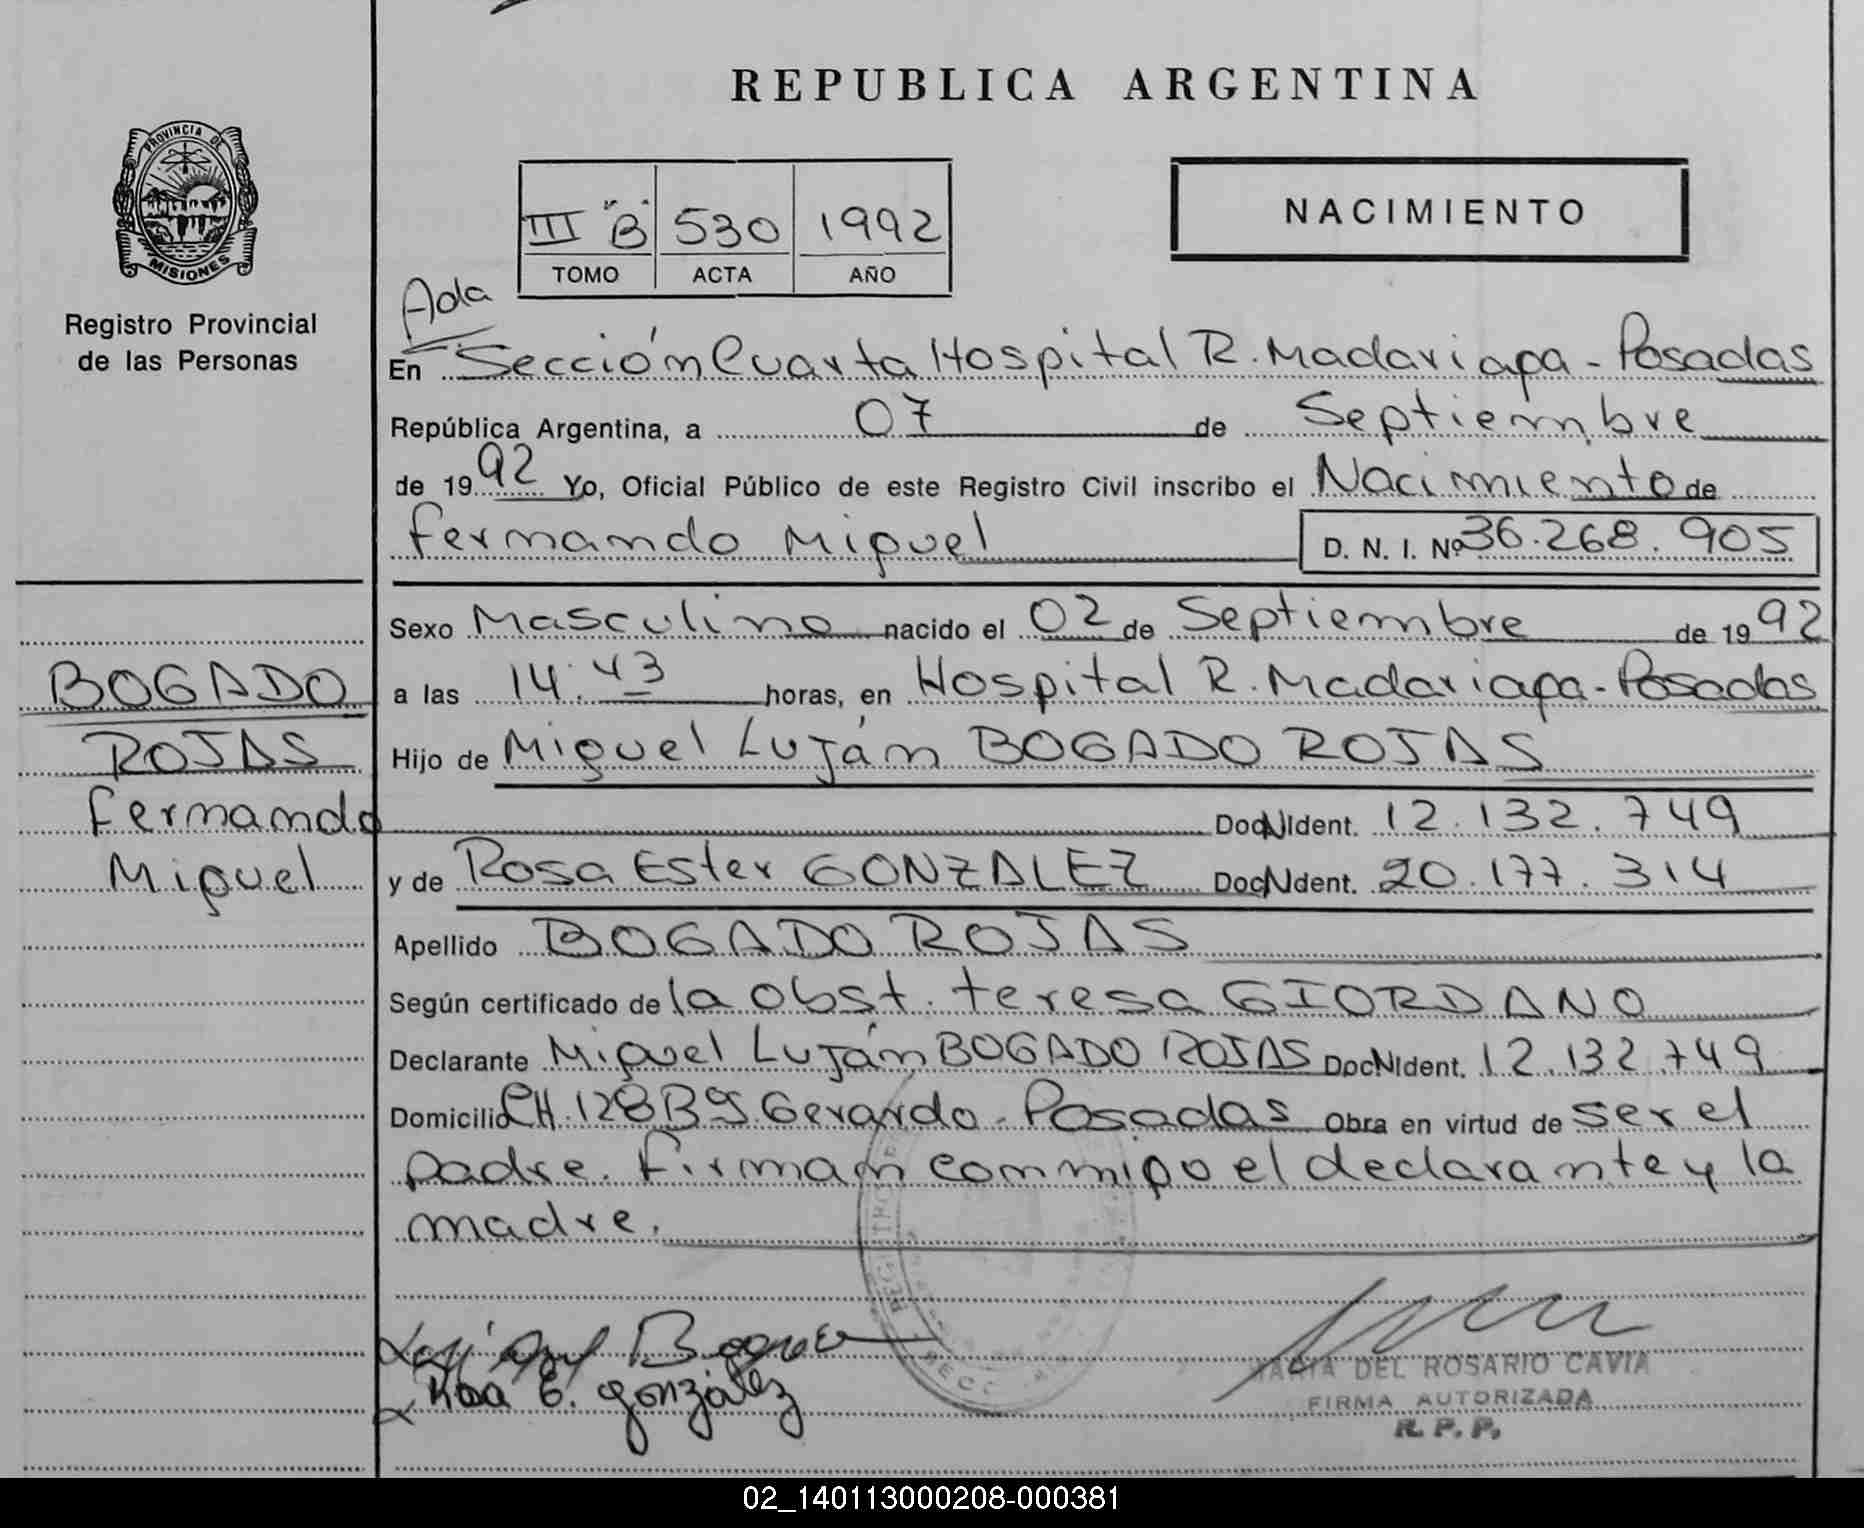 REPUBLICA ARGENTINA
PROVINCIA DE
MISIONES
Registro Provincial
de las Personas
III "B" 530 1992
TOMO ACTA AÑO
NACIMIENTO
Ada
En Sección Cuarta Hospital R. Madariaga - Posadas
República Argentina, a 07 de Septiembre
de 1992 Yo, Oficial Público de este Registro Civil inscribo el Nacimiento de
Fernando Miguel D. N. I. Nº 36.268.905
Sexo Masculino nacido el 02 de Septiembre de 1992
BOGADO
a las 14:43 horas, en Hospital R. Madariaga - Posadas
ROJAS
Hijo de Miguel Luján BOGADO ROJAS
Fernando
Doc N Ident. 12.132.749
Miguel
y de Rosa Ester GONZALEZ Doc N Ident. 20.177.314
Apellido BOGADO ROJAS
Según certificado de la obst. teresa GIORDANO
Declarante Miguel Luján BOGADO ROJAS Doc N Ident. 12.132.749
Domicilio CH. 128 Bº S Gerardo - Posadas Obra en virtud de ser el
padre. Firman conmigo el declarante y la
madre.
Rosa E. González
MARIA DEL ROSARIO CAVIA
FIRMA AUTORIZADA
R. P. P.
02_140113000208-000381